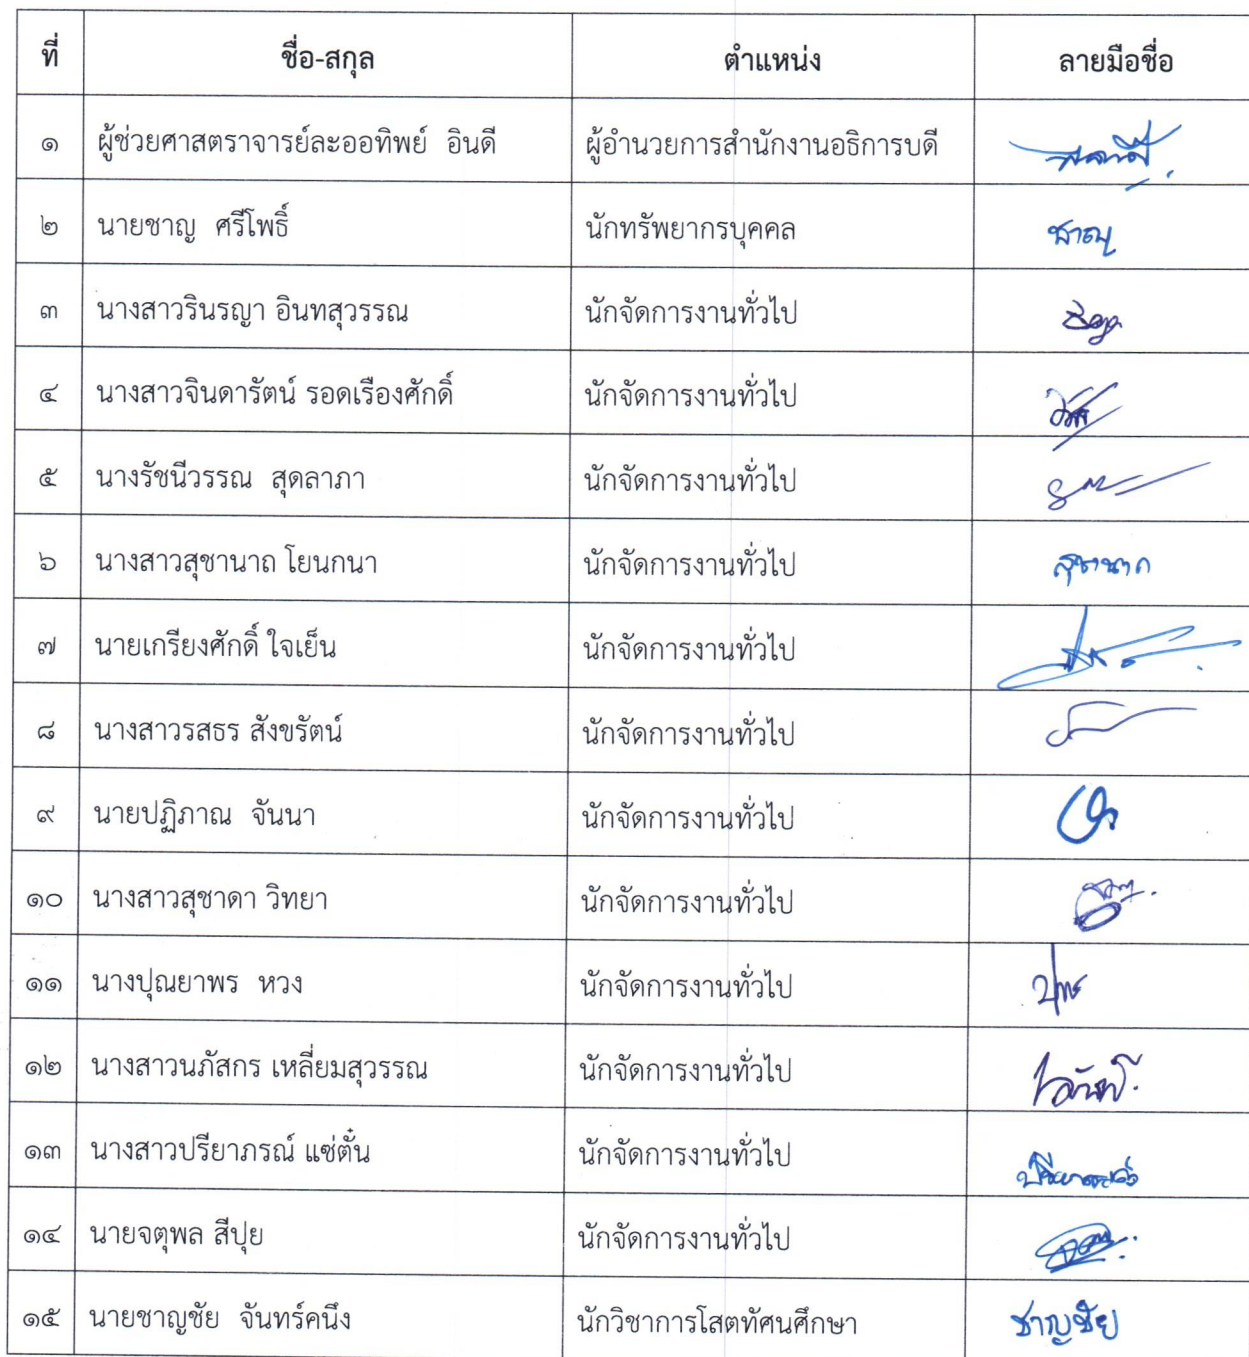 ที่ ชื่อ-สกุล ตำแหน่ง ลายมือชื่อ
๑ ผู้ช่วยศาสตราจารย์ละออทิพย์ อินดี ผู้อำนวยการสำนักงานอธิการบดี
๒ นายชาญ ศรีโพธิ์ นักทรัพยากรบุคคล ชาญ
๓ นางสาวรินรญา อินทสุวรรณ นักจัดการงานทั่วไป
๔ นางสาวจินดารัตน์ รอดเรืองศักดิ์ นักจัดการงานทั่วไป
๕ นางรัชนีวรรณ สุดลาภา นักจัดการงานทั่วไป
๖ นางสาวสุชานาถ โยนกนา นักจัดการงานทั่วไป สุชานาถ
๗ นายเกรียงศักดิ์ ใจเย็น นักจัดการงานทั่วไป
๘ นางสาวรสธร สังขรัตน์ นักจัดการงานทั่วไป
๙ นายปฏิภาณ จันนา นักจัดการงานทั่วไป
๑๐ นางสาวสุชาดา วิทยา นักจัดการงานทั่วไป
๑๑ นางปุณยาพร หวง นักจัดการงานทั่วไป
๑๒ นางสาวนภัสกร เหลี่ยมสุวรรณ นักจัดการงานทั่วไป
๑๓ นางสาวปรียาภรณ์ แซ่ตั๋น นักจัดการงานทั่วไป ปรียาภรณ์
๑๔ นายจตุพล สีปุย นักจัดการงานทั่วไป
๑๕ นายชาญชัย จันทร์คนึง นักวิชาการโสตทัศนศึกษา ชาญชัย